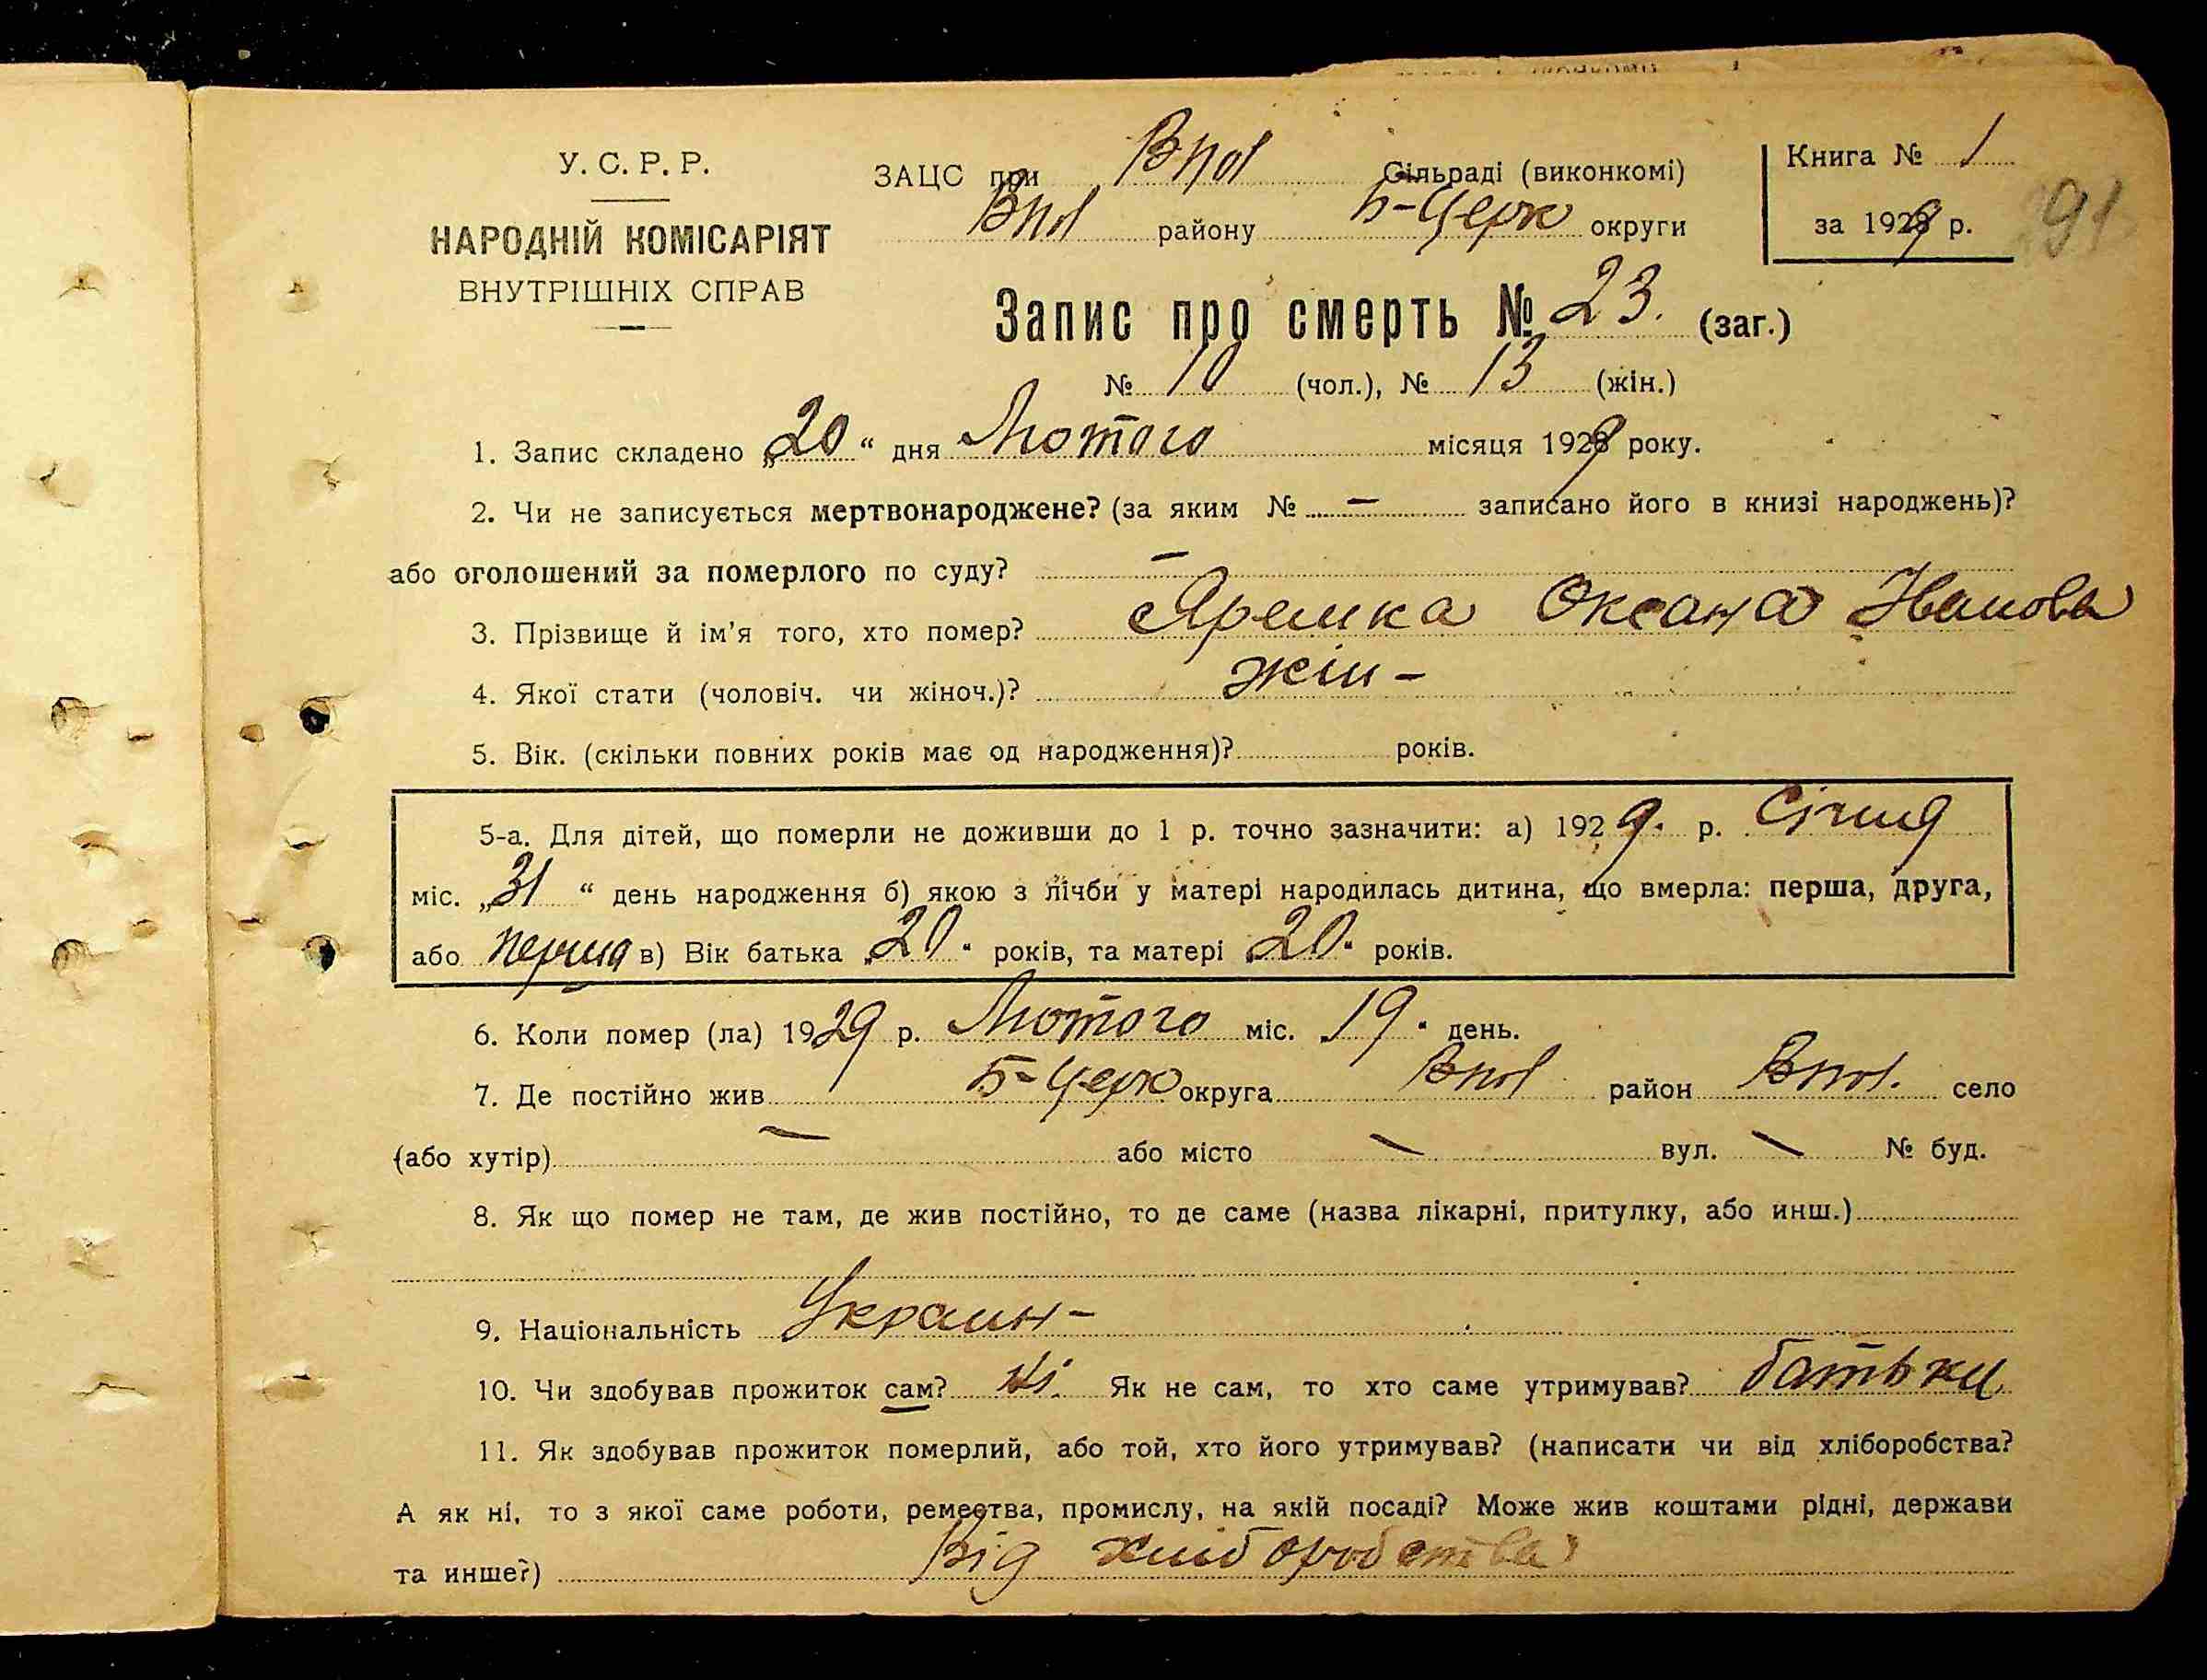 У. С. Р. Р.
НАРОДНІЙ КОМІСАРІЯТ
ВНУТРІШНІХ СПРАВ
ЗАЦС при Впол Сільраді (виконкомі)
Впол району Б-Церк округи
Книга № 1
за 1929 р.
91
Запис про смерть № 23. (заг.)
№ 10 (чол.), № 13 (жін.)
1. Запис складено „20“ дня Лютого місяця 1929 року.
2. Чи не записується мертвонароджене? (за яким № — записано його в книзі народжень)?
або оголошений за померлого по суду? —
3. Прізвище й ім'я того, хто помер? Яремка Оксана Іванова
4. Якої стати (чоловіч. чи жіноч.)? жін -
5. Вік. (скільки повних років має од народження)? років.
5-а. Для дітей, що померли не доживши до 1 р. точно зазначити: а) 1929. р. Січня
міс. „31“ день народження б) якою з лічби у матері народилась дитина, що вмерла: перша, друга,
або перша в) Вік батька „20“ років, та матері „20“ років.
6. Коли помер (ла) 1929 р. Лютого міс. „19“ день.
7. Де постійно жив Б-Церк округа Впол район Впол. село
(або хутір) — або місто — вул. — № буд.
8. Як що помер не там, де жив постійно, то де саме (назва лікарні, притулку, або инш.)
9. Національність Украин-
10. Чи здобував прожиток сам? Ні. Як не сам, то хто саме утримував? батьки
11. Як здобував прожиток померлий, або той, хто його утримував? (написати чи від хліборобства?
А як ні, то з якої саме роботи, ремества, промислу, на якій посаді? Може жив коштами рідні, держави
та инше?) Від хліборобства